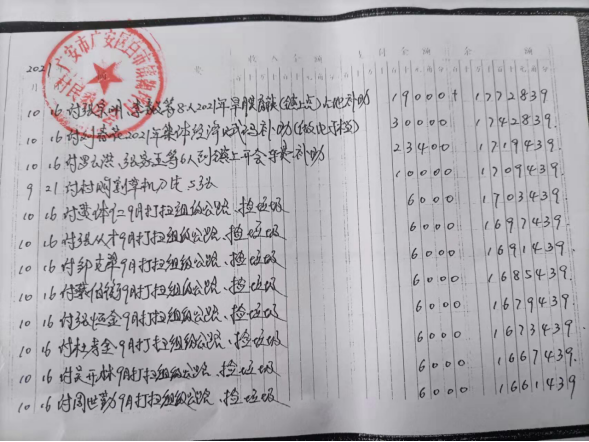 广安市广安区白市镇
村民委员会
2021
收入金额 支付金额 余额
10 16 付 等8人2021年旱 补助 19000 1772839
10 16 付 2021年集体经济 补助 30000 1742839
10 16 付 等6人到镇上开会 补助 23400 1719439
9 21 付村购割草机刀片5张 10000 1709439
10 16 付蔡体仁9月打扫组级公路、捡垃圾 6000 1703439
10 16 付张从才9月打扫组级公路、捡垃圾 6000 1697439
10 16 付邹克翠9月打扫组级公路、捡垃圾 6000 1691439
10 16 付蔡伯 9月打扫组级公路、捡垃圾 6000 1685439
10 16 付张恒金9月打扫组级公路、捡垃圾 6000 1679439
10 16 付杜寿金9月打扫组级公路、捡垃圾 6000 1673439
10 16 付吴开林9月打扫组级公路、捡垃圾 6000 1667439
10 16 付周世勤9月打扫组级公路、捡垃圾 6000 1661439